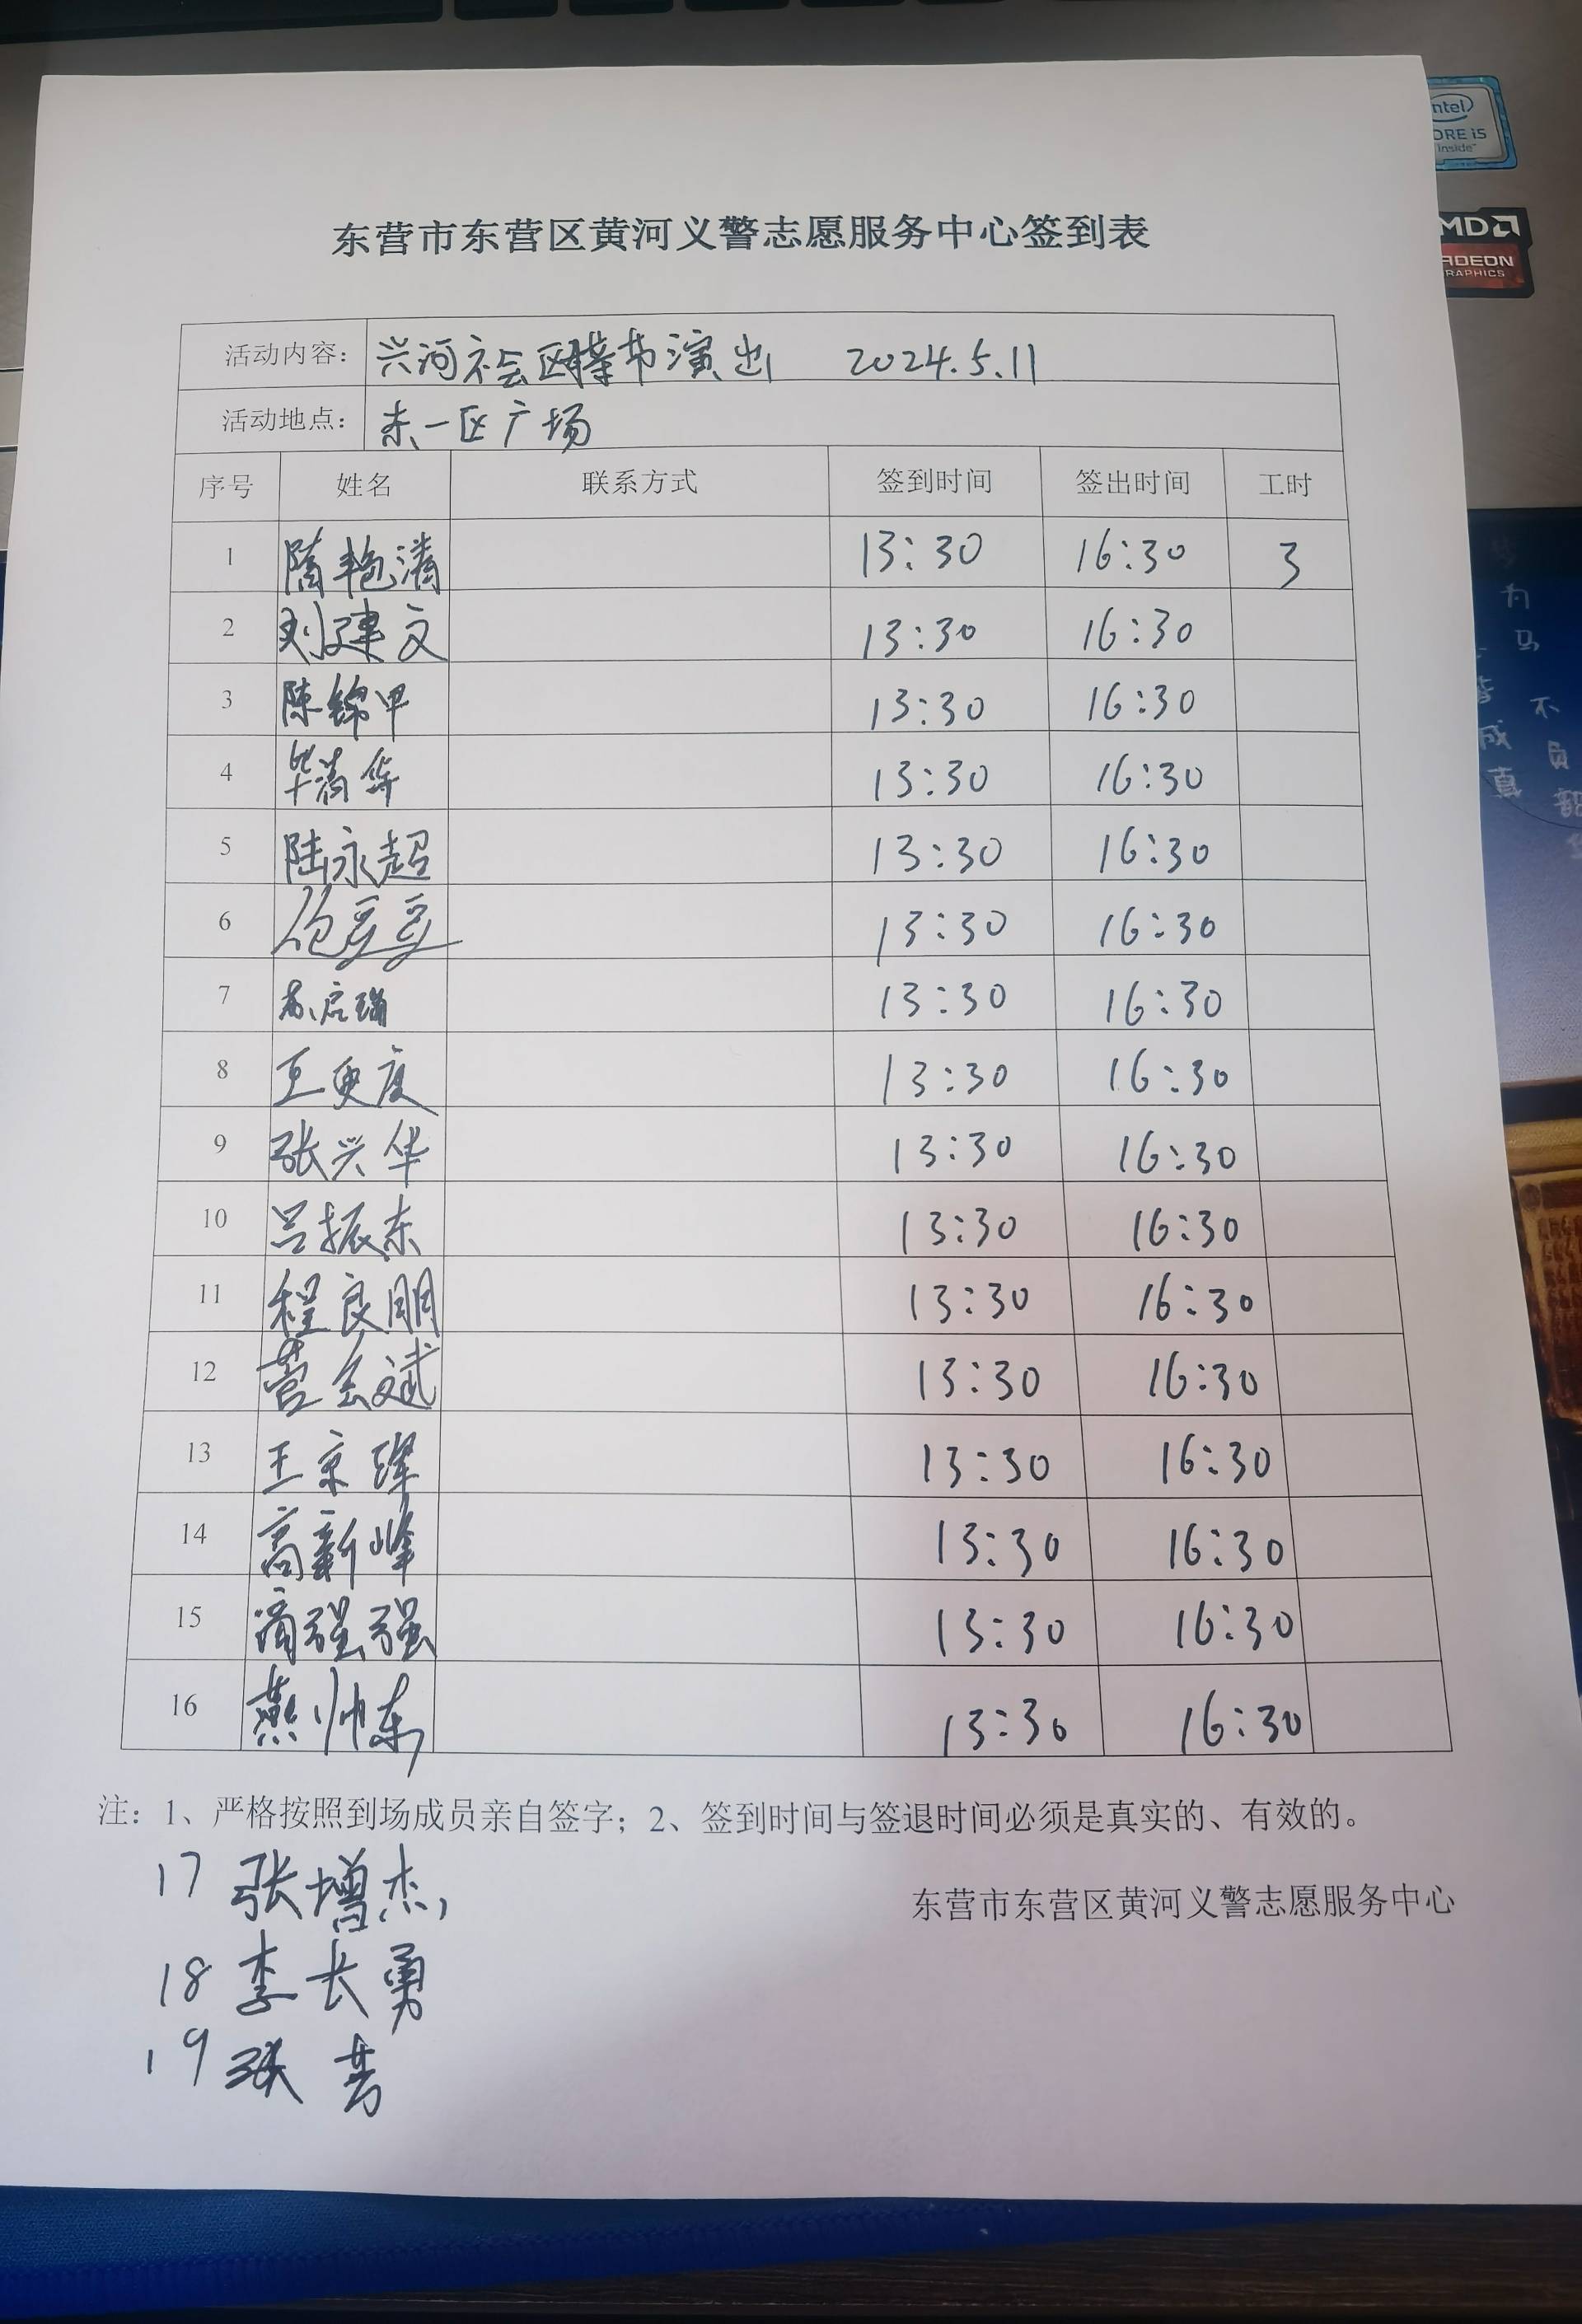 intel
CORE i5
inside
AMD
RADEON
GRAPHICS
东营市东营区黄河义警志愿服务中心签到表
活动内容： 兴河社会区 节演出 2024.5.11
活动地点： 东一区广场
序号 姓名 联系方式 签到时间 签出时间 工时
1 隋艳清 13:30 16:30 3
2 刘建文 13:30 16:30
3 陈锦甲 13:30 16:30
4 毕清华 13:30 16:30
5 陆永超 13:30 16:30
6 豆豆 13:30 16:30
7 苏启瑞 13:30 16:30
8 王更度 13:30 16:30
9 张兴华 13:30 16:30
10 吕振东 13:30 16:30
11 程良朋 13:30 16:30
12 营会斌 13:30 16:30
13 王京 13:30 16:30
14 高新峰 13:30 16:30
15 强强 13:30 16:30
16 燕帅东 13:30 16:30
注：1、严格按照到场成员亲自签字；2、签到时间与签退时间必须是真实的、有效的。
17 张增杰
东营市东营区黄河义警志愿服务中心
18 李长勇
19 张芳